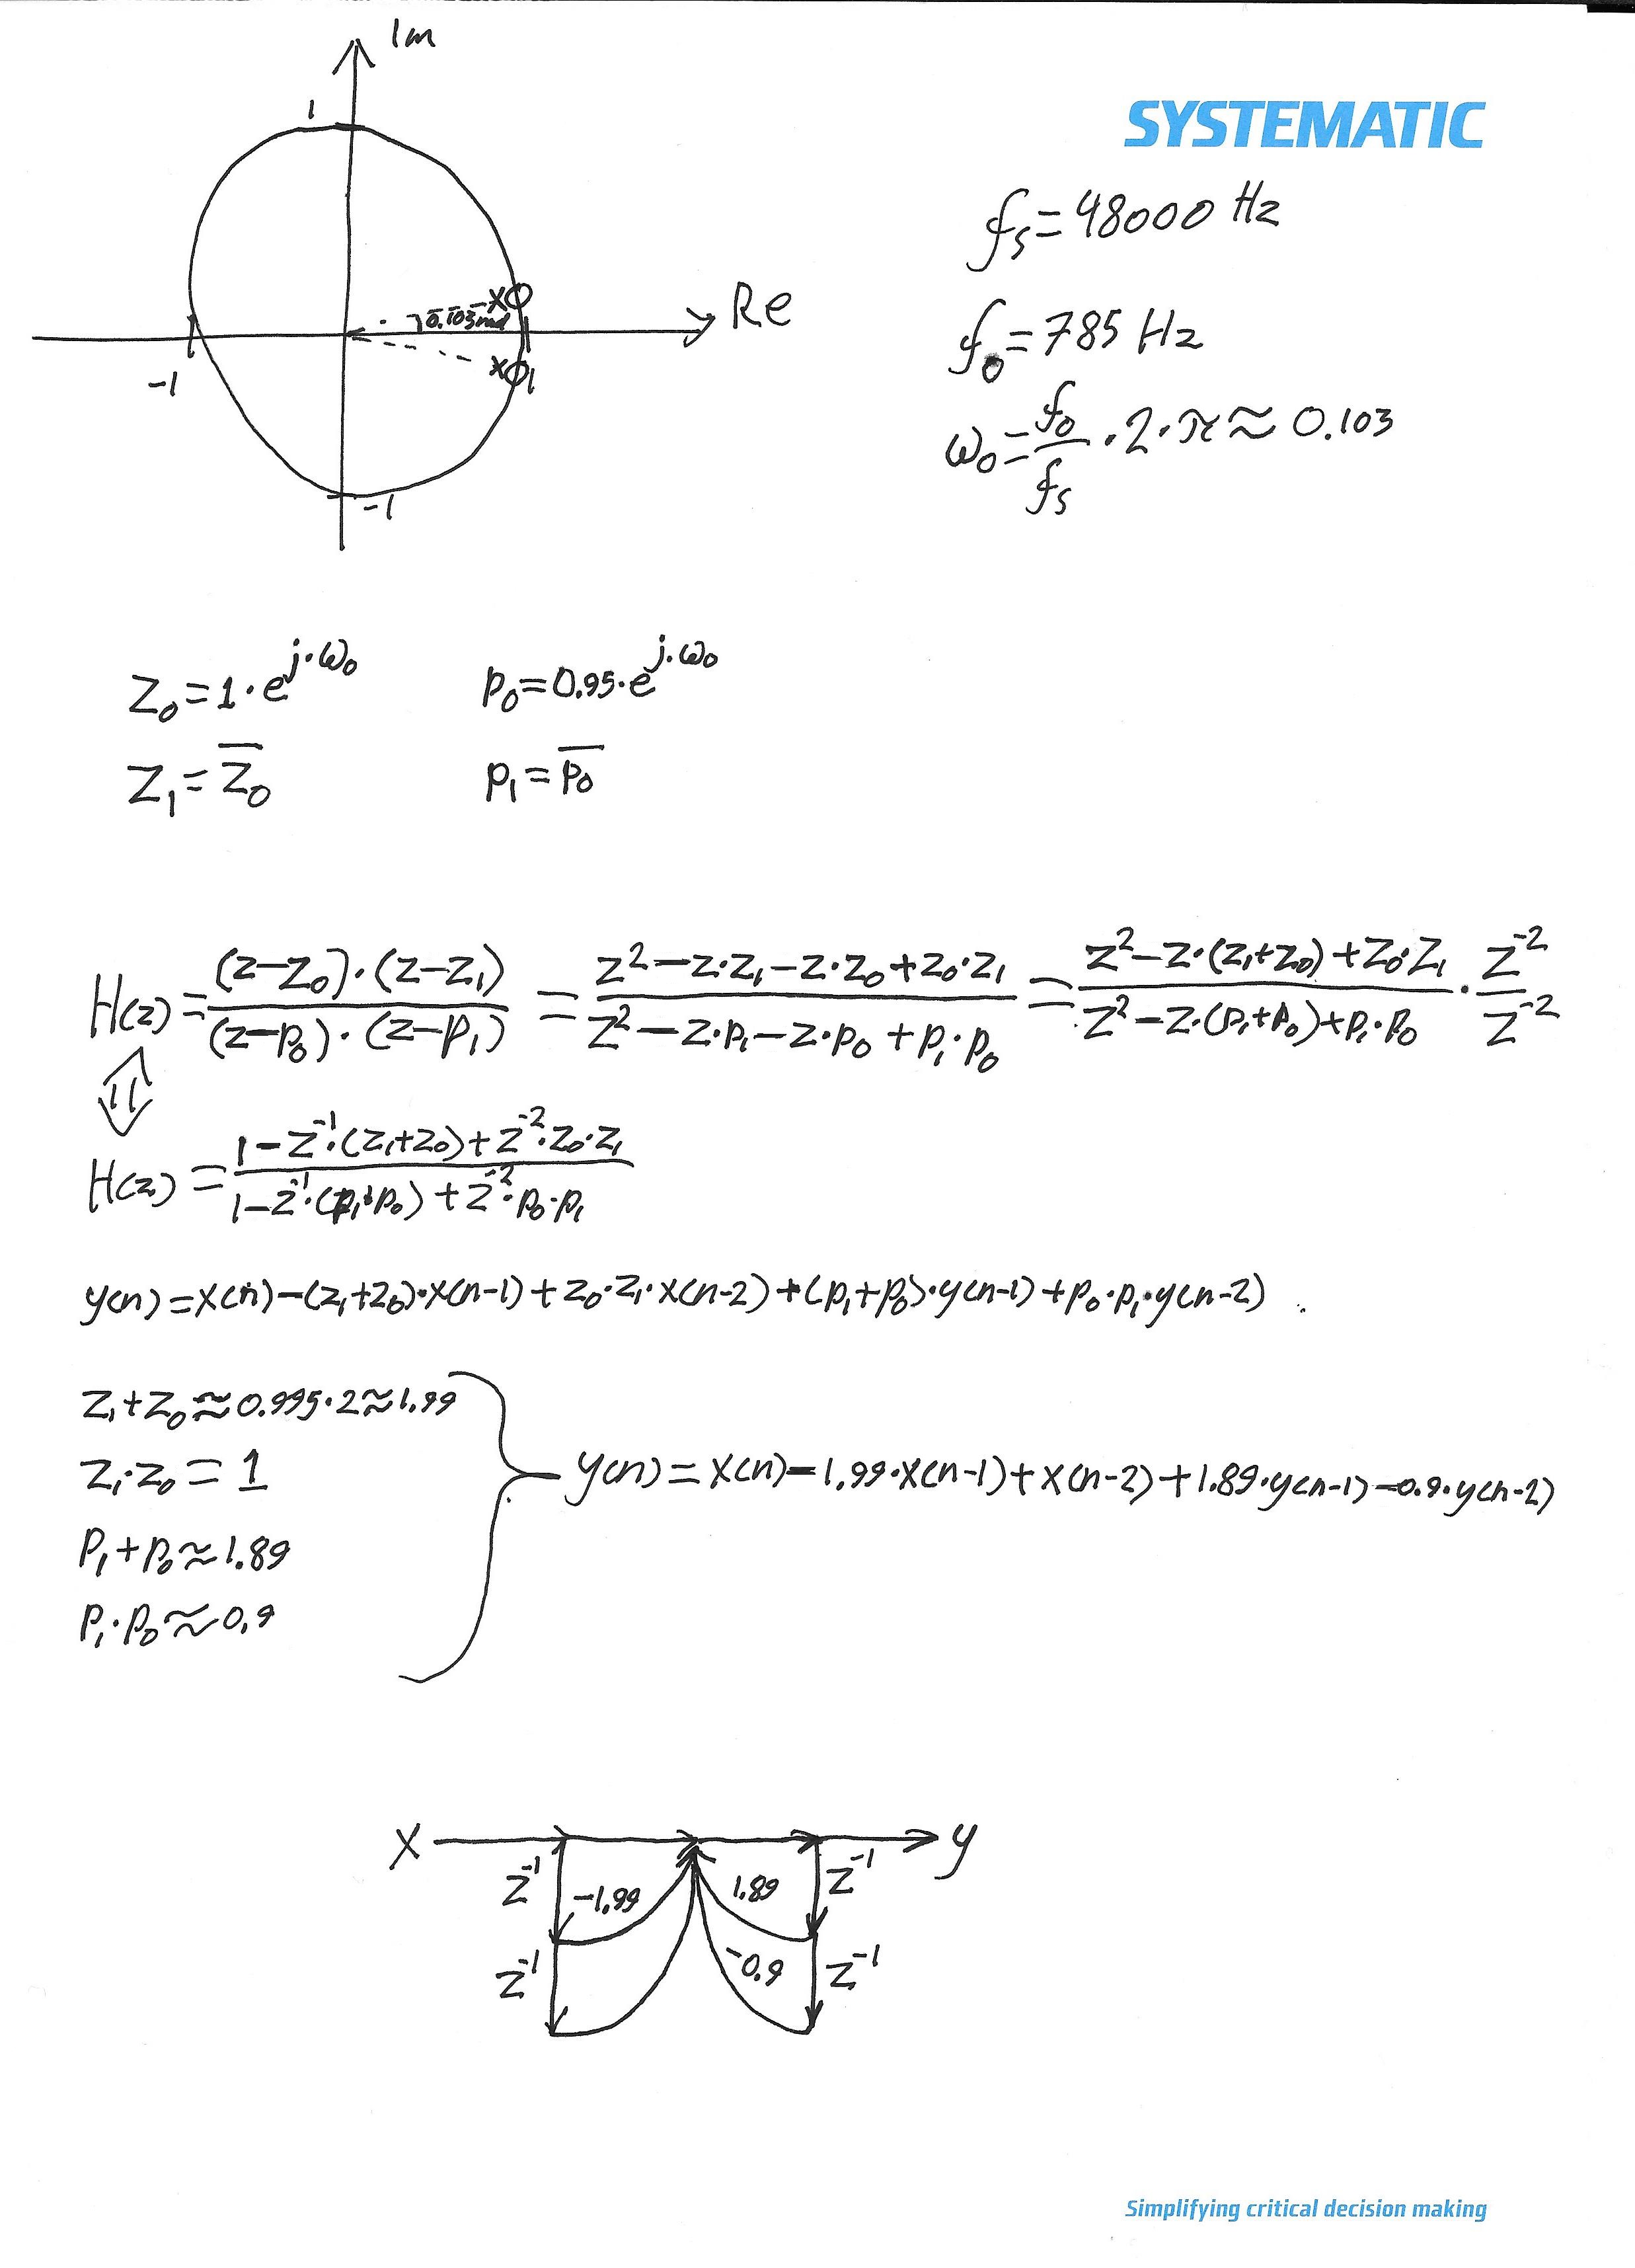 Im
1
SYSTEMATIC
fs = 48000 Hz
Re
0.103 rad
f0 = 785 Hz
-1
1
ω0 = f0/fs · 2 · π ≈ 0.103
-1
z0 = 1 · e^(j·ω0)
p0 = 0.95 · e^(j·ω0)
z1 = z̅0
p1 = p̅0
H(z) = (z-z0)·(z-z1) / (z-p0)·(z-p1) = z² - z·z1 - z·z0 + z0·z1 / z² - z·p1 - z·p0 + p1·p0 = z² - z·(z1+z0) + z0·z1 / z² - z·(p1+p0) + p1·p0 · z⁻² / z⁻²
⇕
H(z) = 1 - z⁻¹·(z1+z0) + z⁻²·z0·z1 / 1 - z⁻¹·(p1+p0) + z⁻²·p0·p1
y(n) = x(n) - (z1+z0)·x(n-1) + z0·z1·x(n-2) + (p1+p0)·y(n-1) + p0·p1·y(n-2)
z1 + z0 ≈ 0.995·2 ≈ 1.99
z1·z0 = 1
y(n) = x(n) - 1.99·x(n-1) + x(n-2) + 1.89·y(n-1) - 0.9·y(n-2)
p1 + p0 ≈ 1.89
p1·p0 ≈ 0.9
x y
z⁻¹ -1.99 1.89 z⁻¹
z⁻¹ -0.9 z⁻¹
Simplifying critical decision making